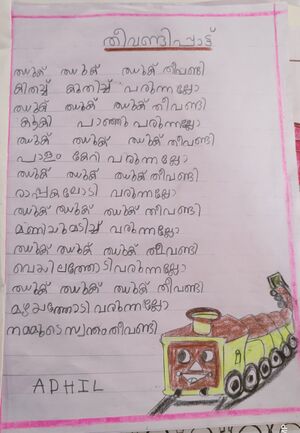 തീവണ്ടിപ്പാട്ട്
ഝുക് ഝുക് ഝുക് തീവണ്ടി
കിതച്ച് കുതിച്ച് വരുന്നല്ലോ
ഝുക് ഝുക് ഝുക് തീവണ്ടി
കൂകി പാഞ്ഞു വരുന്നല്ലോ
ഝുക് ഝുക് ഝുക് തീവണ്ടി
പാളം കേറി വരുന്നല്ലോ
ഝുക് ഝുക് ഝുക് തീവണ്ടി
രാപ്പകലോടി വരുന്നല്ലോ
ഝുക് ഝുക് ഝുക് തീവണ്ടി
മണിയുമടിച്ച് വരുന്നല്ലോ
ഝുക് ഝുക് ഝുക് തീവണ്ടി
വരുന്നല്ലോ
ഝുക് ഝുക് ഝുക് തീവണ്ടി
മഴയത്തോടി വരുന്നല്ലോ
നമ്മുടെ സ്വന്തം തീവണ്ടി
ADHIL